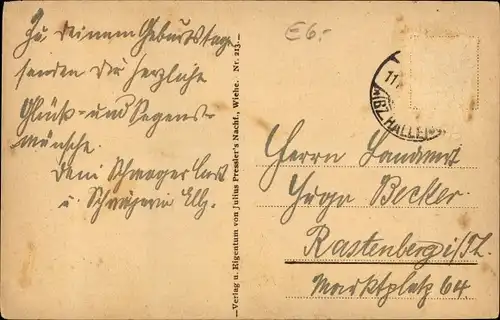 Zu Deinem Geburtstage
senden Dir herzliche
Glück- und Segens-
wünsche.
Dein Schwager Curt
u. Schwägerin Elly.
E6.-
–Verlag u. Eigentum von Julius Pressler's Nachf., Wiehe. Nr. 213.–
11.
(BZ. HALLE)
Herrn Landwirt
Hugo Becker.
Rastenberg i/Th.
Marktplatz 64.